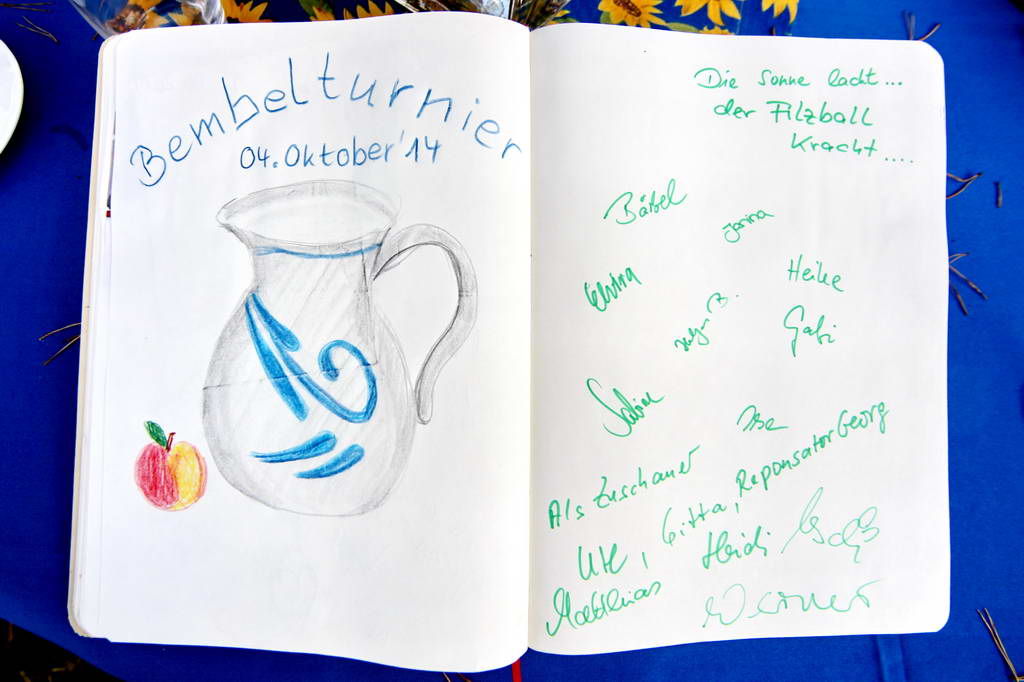 Bembelturnier
04. Oktober '14
Die Sonne lacht...
der Filzball
kracht....
Bärbel
Janina
Elvira
Heike
Gabi
Sabine
Ilse
Als Zuschauer
Ute, Gitta, Reponsator Georg
Matthias Heidi
Werner